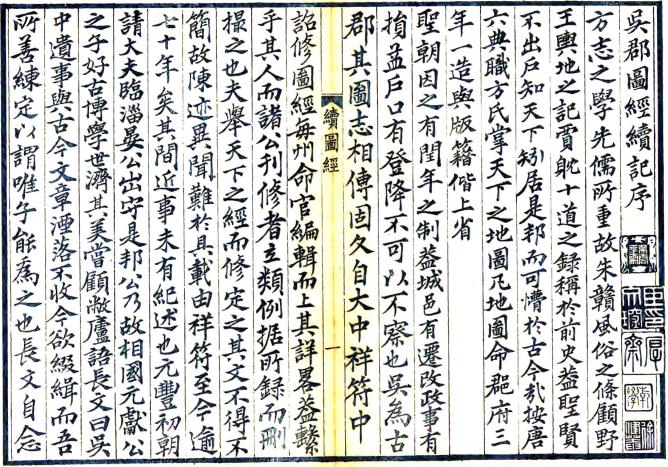 吳郡圖經續記序
方志之學先儒所重故朱贛風俗之條顧野
王輿地之記賈耽十道之録稱於前史蓋聖賢
不出戶知天下矧居是邦而可懵於古今哉按唐
六典職方氏掌天下之地圖凡地圖命郡府三
年一造與版籍偕上省
聖朝因之有閏年之制蓋城邑有遷改政事有
損益戶口有登降不可以不察也吳為古
郡其圖志相傳固久自大中祥符中
續圖經
一
詔修圖經每州命官編輯而上其詳畧蓋繫
乎其人而諸公刊修者立類例據所録而刪
撮之也夫舉天下之經而修定之其文不得不
簡故陳迹異聞難於具載由祥符至今逾
七十年矣其間近事未有紀述也元豐初朝
請大夫臨淄晏公出守是邦公乃故相國元獻公
之子好古博學世濟其美嘗顧敝廬語長文曰吳
中遺事與古今文章湮落不收今欲綴緝而吾
所善練定以謂唯子能為之也長文自念